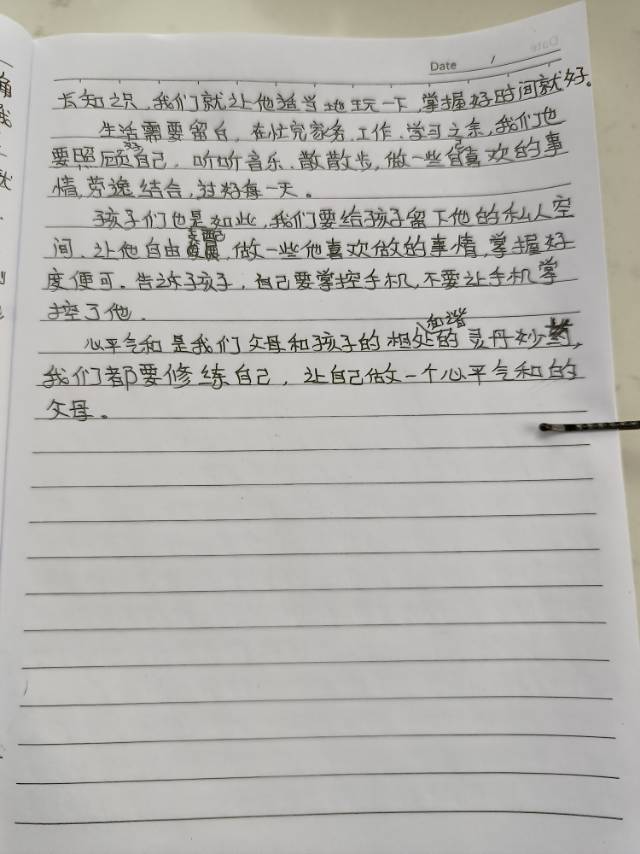 Date /
长知识，我们就让他适当地玩一下，掌握好时间就好。
生活需要留白，在忙完家务、工作、学习之余，我们也
要照顾好自己，听听音乐、散散步，做一些自己喜欢的事
情，劳逸结合，过好每一天。
孩子们也是如此，我们要给孩子留下他的私人空
间，让他自由支配，做一些他喜欢做的事情，掌握好
度便可。告诉孩子，自己要掌控手机，不要让手机掌
控了他。
心平气和是我们父母和孩子的相处和谐的灵丹妙药，
我们都要修练自己，让自己做一个心平气和的
父母。